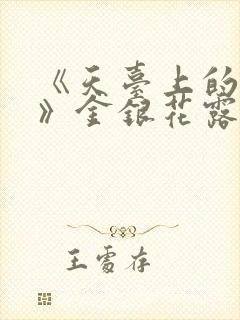 《天臺上的
》金銀花露
王雪存